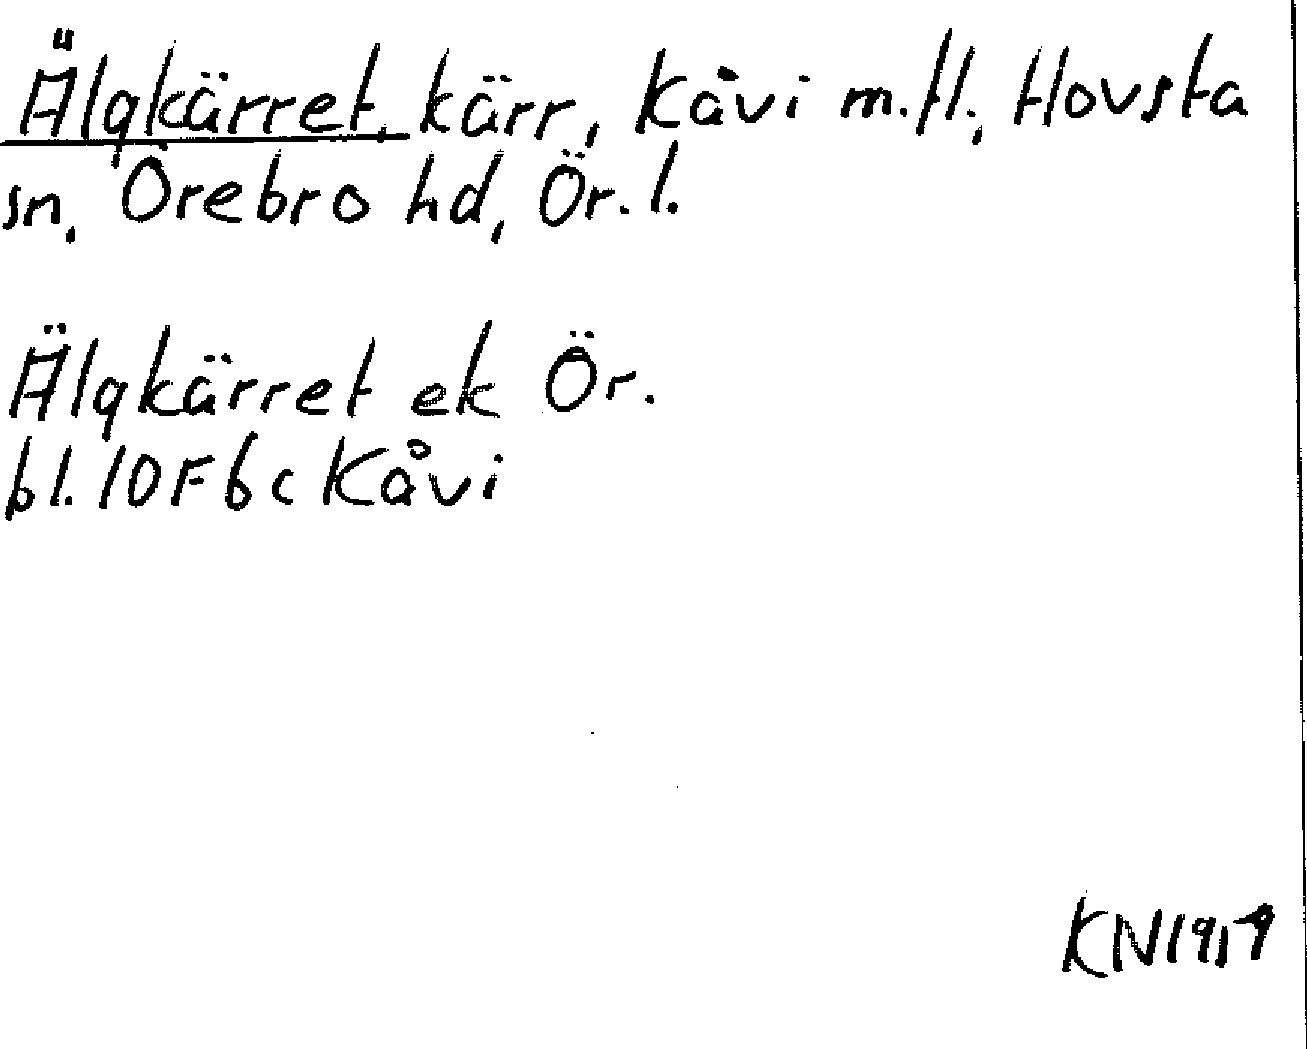 Älgkärret, kärr, Kåvi m.fl., Hovsta
sn, Örebro hd, Ör. l.
Älgkärret ek Ör.
bl. 10F6c Kåvi